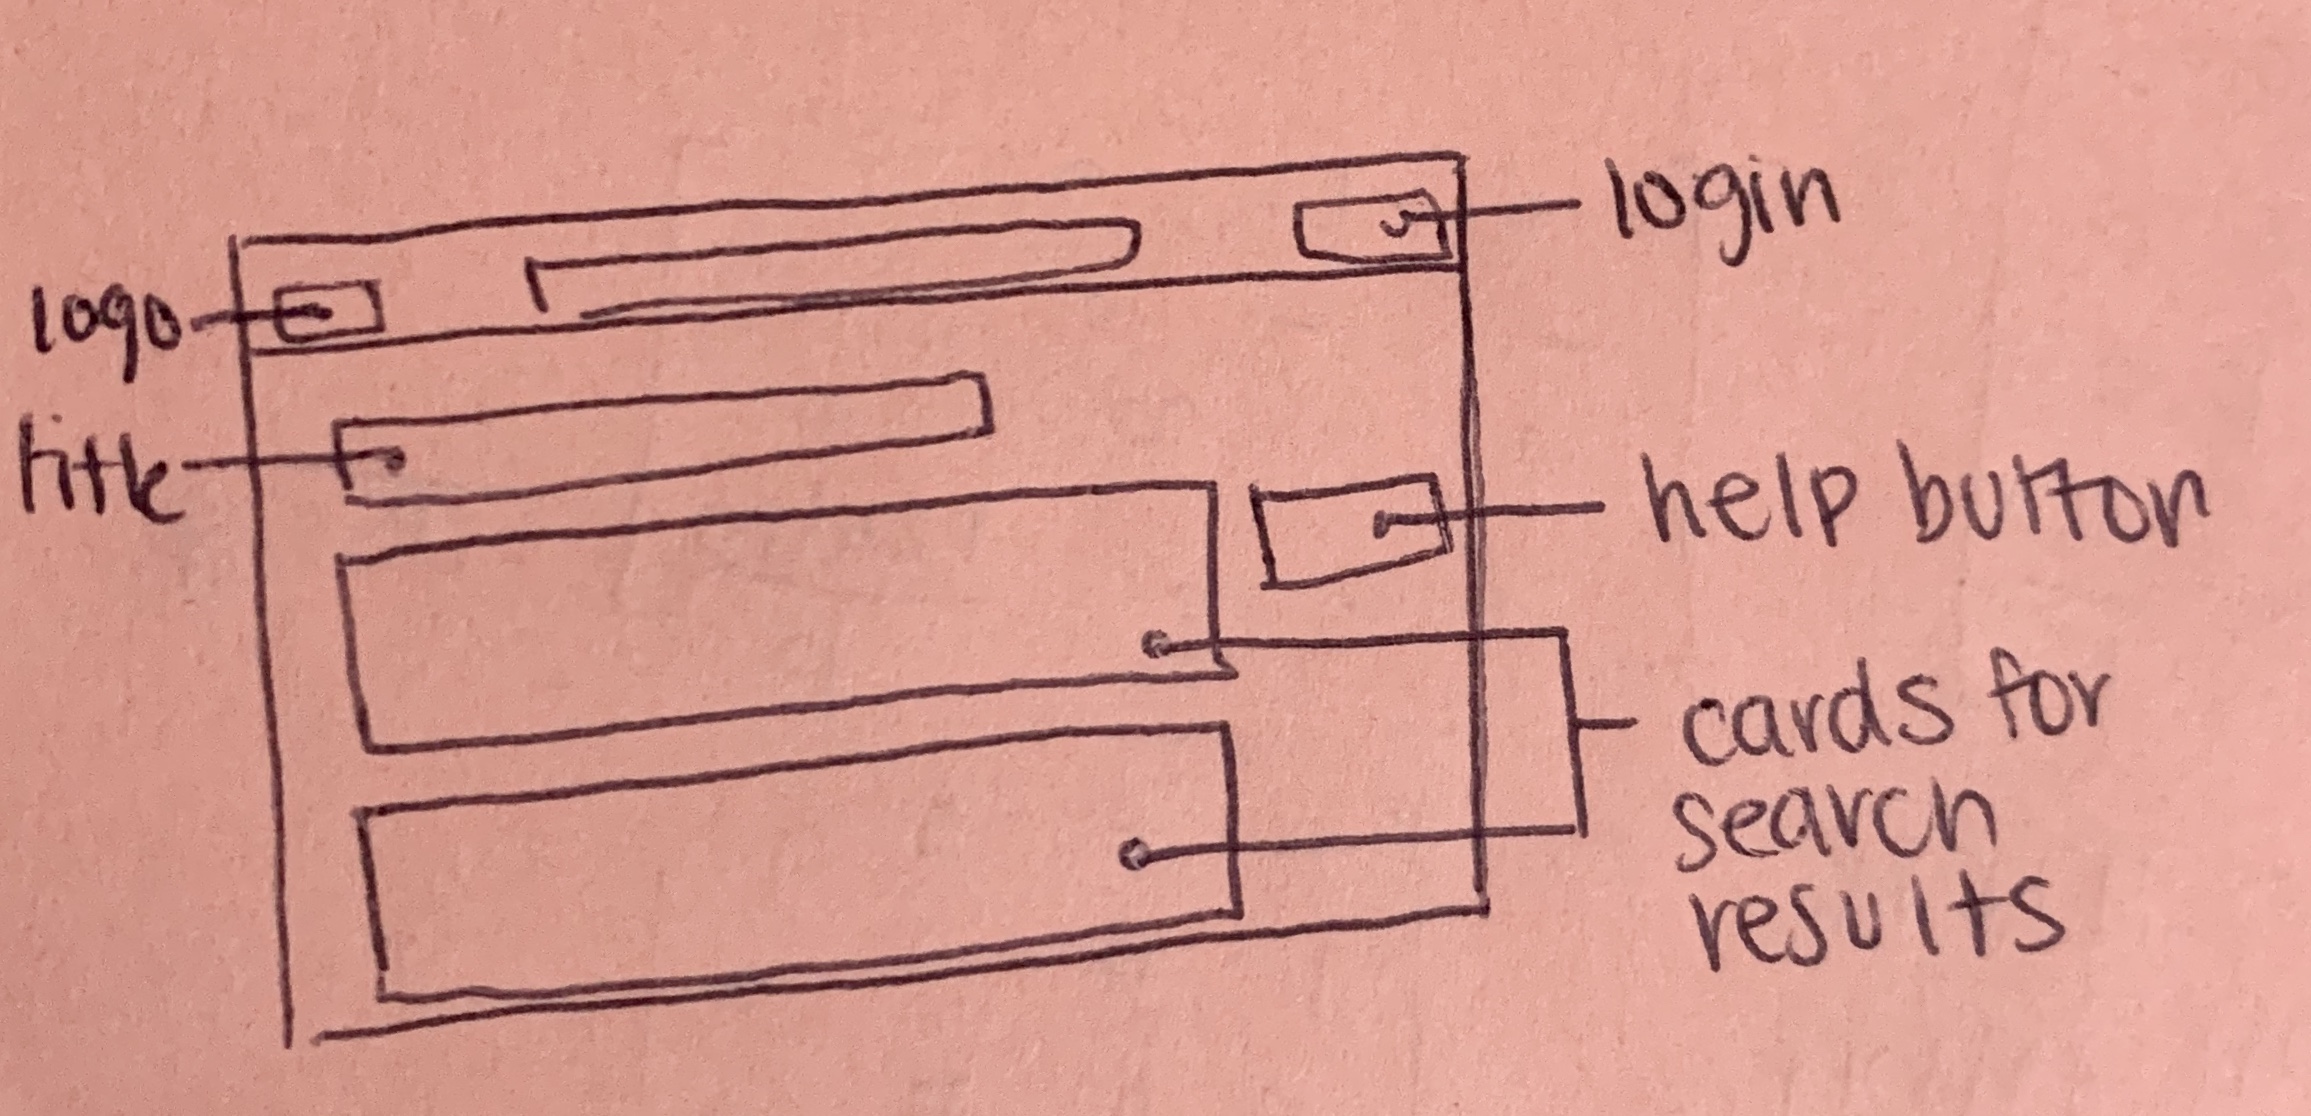 login
logo
title
help button
cards for
search
results